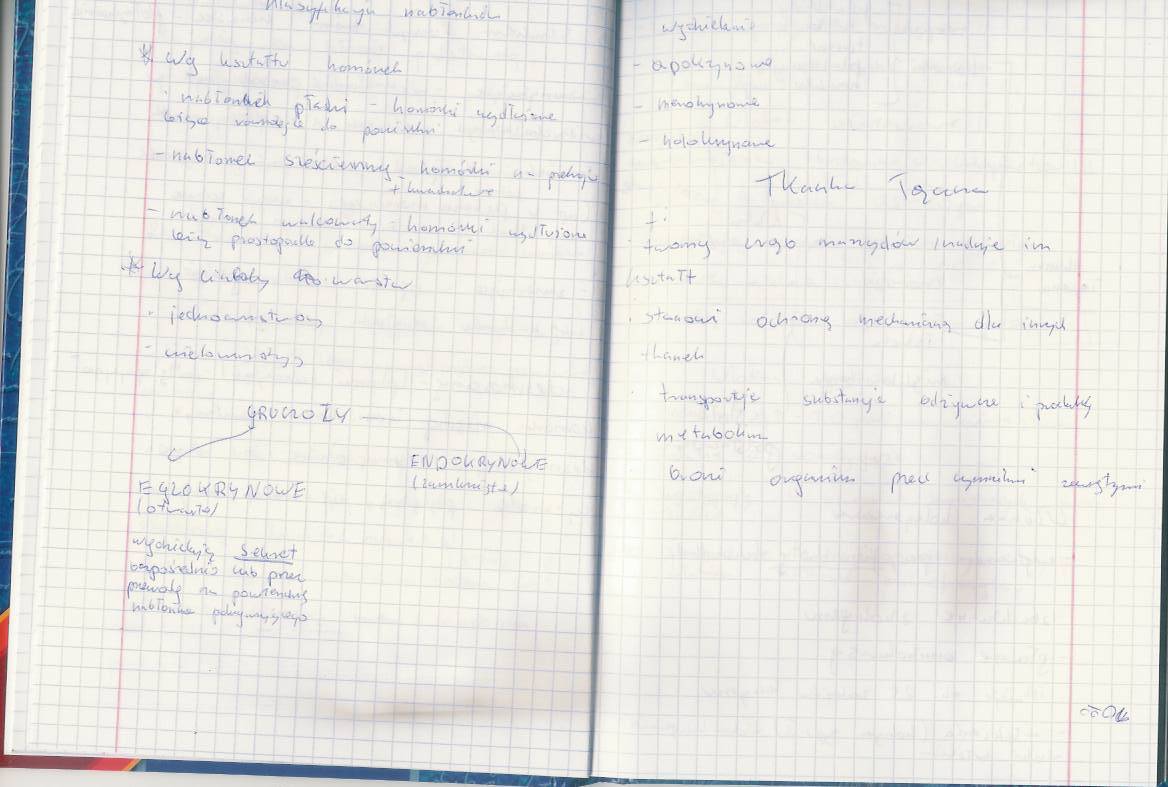 Klasyfikacja nabłonków
* Wg kształtu komórek
- nabłonek płaski - komórki wydłużone
leżące równolegle do powierzchni
- nabłonek sześcienny komórki na przekroju
+ kwadratowe
- nabłonek walcowaty - komórki wydłużone
leżą prostopadle do powierzchni
* Wg liczby warstw
- jednowarstwowy
- wielowarstwowy
GRUCZOŁY
ENDOKRYNOWE
(zamknięte)
EGZOKRYNOWE
(otwarte)
wydzielają sekret
bezpośrednio lub przez
przewody na powierzchnię
nabłonka pokrywającego
wydzielanie
- apokrynowe
- merokrynowe
- holokrynowe
Tkanka Łączna
tworzy zrąb narządów i nadaje im
kształt
stanowi ochronę mechaniczną dla innych
tkanek
transportuje substancje odżywcze i produkty
metabolizmu
broni organizm przed czynnikami zewnętrznymi